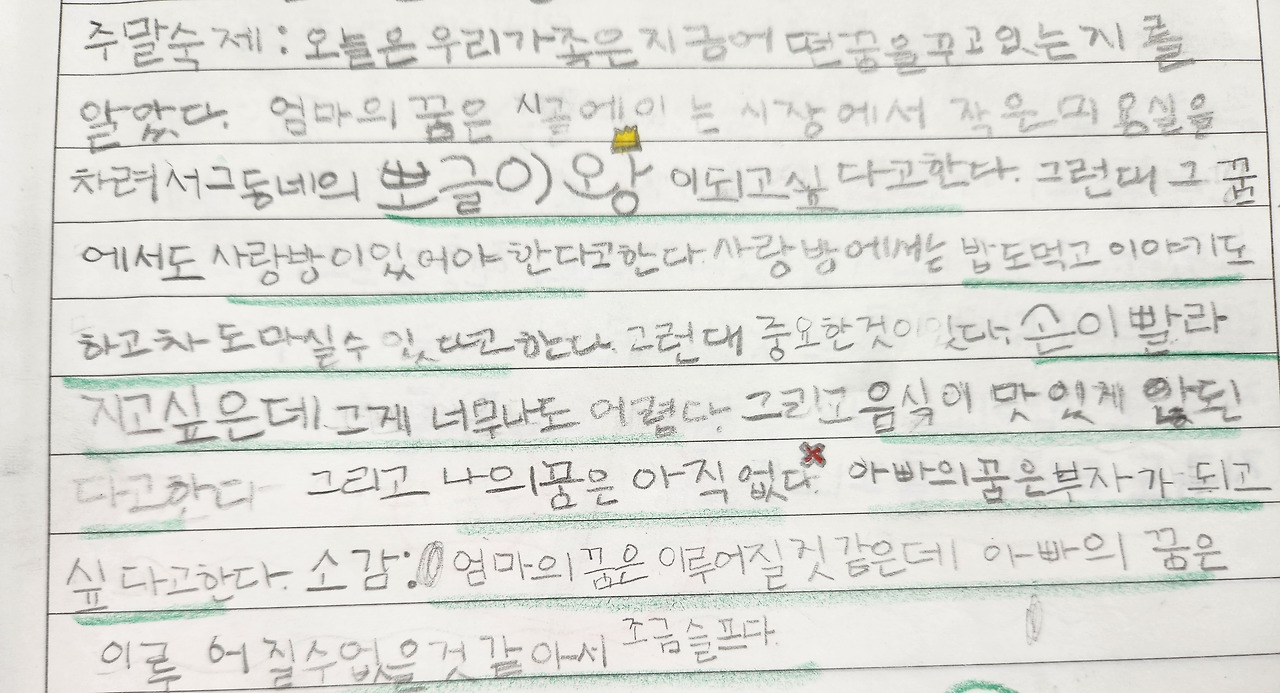 주말숙제: 오늘은 우리가족은 지금 어떤꿈을 꾸고 있는지 를
알았다. 엄마의 꿈은 시골에 있는 시장에서 작은 미용실을
차려서 그 동네의 뽀글이 왕 이되고싶다고한다. 그런대 그 꿈
에서도 사랑방이 있어야 한다고한다. 사랑방에서는 밥도먹고 이야기도
하고 차도 마실수 있다고 한다. 그런대 중요한것이 있다. 손이 빨라
지고싶은데 그게 너무나도 어렵다. 그리고 음식이 맛있게 안된
다고한다 그리고 나의 꿈은 아직 없다. 아빠의 꿈은 부자가 되고
싶다고한다. 소감: 엄마의 꿈은 이루어질 것 같은데 아빠의 꿈은
이루어질수없을것 같아서 조금슬프다.